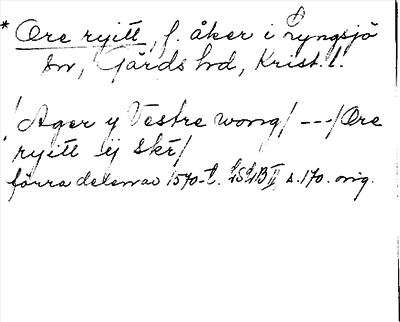 * Ore ryitt, f. åker i Lyngsjö
sn, Gärds hd, Krist. l.
/Ager y Vestre wong/ ---/Ore
ryitt ij Skr/
förra delen av 1570-t. LSLB II, s. 170. orig.